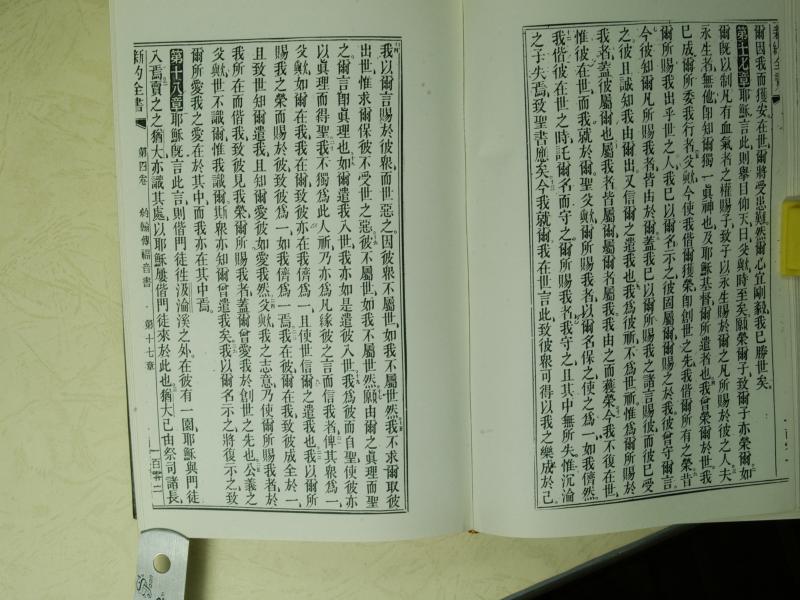 新約全書
爾因我而獲安、在世爾將受患難、然爾心宜剛毅、我已勝世矣。
第十七章 耶穌言此、則舉目仰天曰、父歟、時至矣、願榮爾子、致爾子亦榮爾、如
爾既以制凡有血氣者之權賜子、致子以永生賜爾之凡所賜於彼之人、夫
永生者無他、即知爾獨一眞神也、及耶穌基督、爾所遣者也、我曾榮爾於世、我
已成爾所委我行者、父歟、今使我偕爾獲榮、即創世之先、我偕爾所有之榮、昔
爾所賜我出乎世之人、我已以爾名示之、彼固屬爾、爾賜之於我、彼曾守爾言、
今彼知爾凡所賜我者、皆由於爾、蓋我已以爾所賜我之諸言賜彼、而彼已受
之、彼且誠知我由爾出、又信爾之遣我也、我爲彼祈、不爲世祈、惟爲爾所賜於
我者、蓋彼屬爾也、屬我者皆屬爾、屬爾者屬我、我由之而獲榮、今我不復在世、
惟彼在世、而我就於爾、聖父歟、爾所賜我者、以爾名保之、使之爲一、如我儕然、
我偕彼在世之時、託爾名而守之、爾所賜我者、我守之、且其中無所失、惟沉淪
之子失焉、致聖書應矣、今我就爾、我在世言此、致彼衆可得以我之樂成於己、
我以爾言賜於彼衆、而世惡之、因彼衆不屬世、如我不屬世然、我不求爾取彼
出世、惟求爾保彼不受世之惡、彼不屬世、如我不屬世然、願由爾之眞理而聖
之、爾言即眞理也、如爾遣我入世、我亦如是遣彼入世、我爲彼而自聖、使彼亦
以眞理而得聖、我不獨爲此人祈、乃亦爲凡緣彼之言而信我者、俾其衆爲一、
父歟、如爾在我、我在爾、致彼亦在我儕爲一、且使世信爾之遣我也、我以爾所
賜我之榮而賜於彼、致彼爲一、如我儕爲一焉、我在彼、爾在我、致彼成全於一、
且致世知爾遣我、且知爾愛彼如愛我然、父歟、我之志意、乃使爾所賜我者、於
我所在而偕我、致彼見我榮、爾所賜我者、蓋爾曾愛我於創世之先也、公義之
父歟、世不識爾、惟我識爾、斯衆亦知爾曾遣我矣、我以爾名示之、將復示之、致
爾所愛我之愛在於其中、而我亦在其中焉。
第十八章 耶穌既言此言、則偕門徒徃汲淪溪之外、在彼有一園、耶穌與門徒
入焉、賣之之猶大亦識其處、以耶穌屢偕門徒來於此也、猶大已由祭司諸長、
新約全書 第四卷 約翰傳福音書 第十七章 一百零二